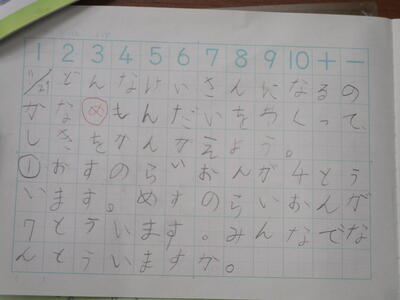 1 2 3 4 5 6 7 8 9 10 + −
11/29 どんなけいさんになるの
かな㋱もんだいをつくって、
しきをかんがえよう。
①おすのらいおんが4とう
います。めすのらいおんが
7とういます。みんなでな
んとういますか。